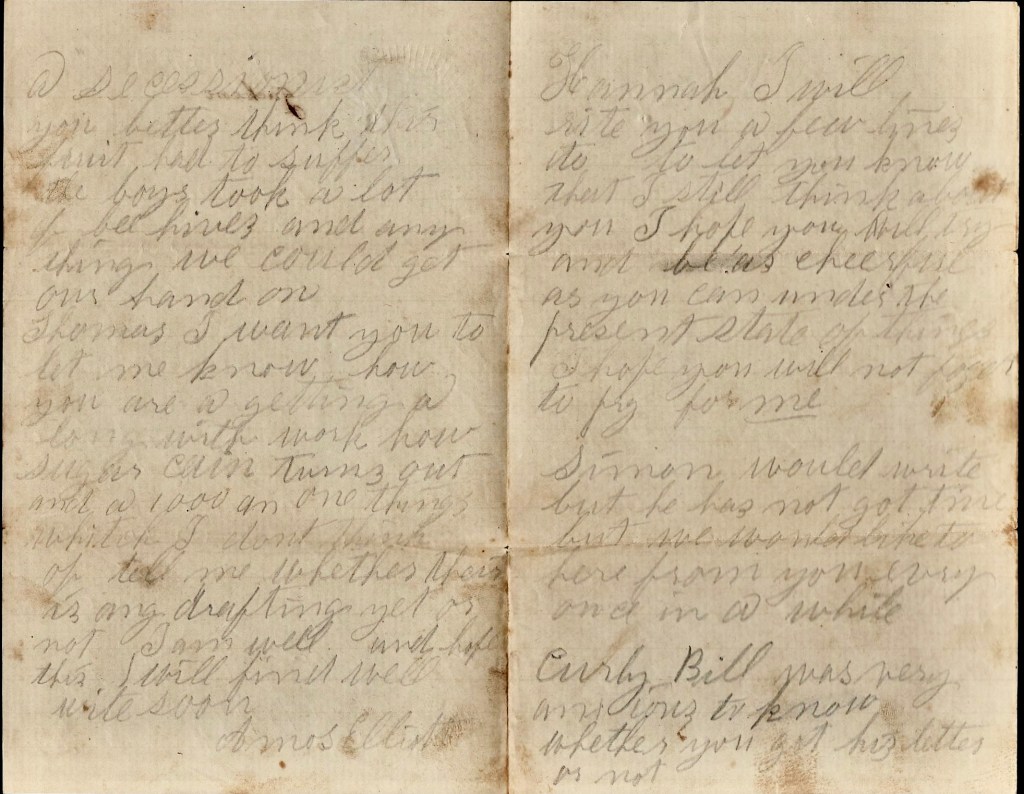 a secessionist
you better think this
fruit had to suffer
the boys took a lot
of bee hives and any
thing we could get
our hand on
Thomas I want you to
let me know how
you are a getting a
long with work how
sugar cain turns out
and a 1000 an one things
whitch I dont think
of tell me whether their
is any drafting yet or
not I am well and hope
this will find well
write soon
Amos Elliott
Hannah I will
rite you a few lines
to to let you know
that I still think about
you I hope you will try
and be as cheerful
as you can under the
present state of things
I hope you will not forget
to pry for me
Simon would write
but he has not got time
but we would like to
here from you every
once in a while
Curly Bill was very
anxious to know
whether you got his letter
or not